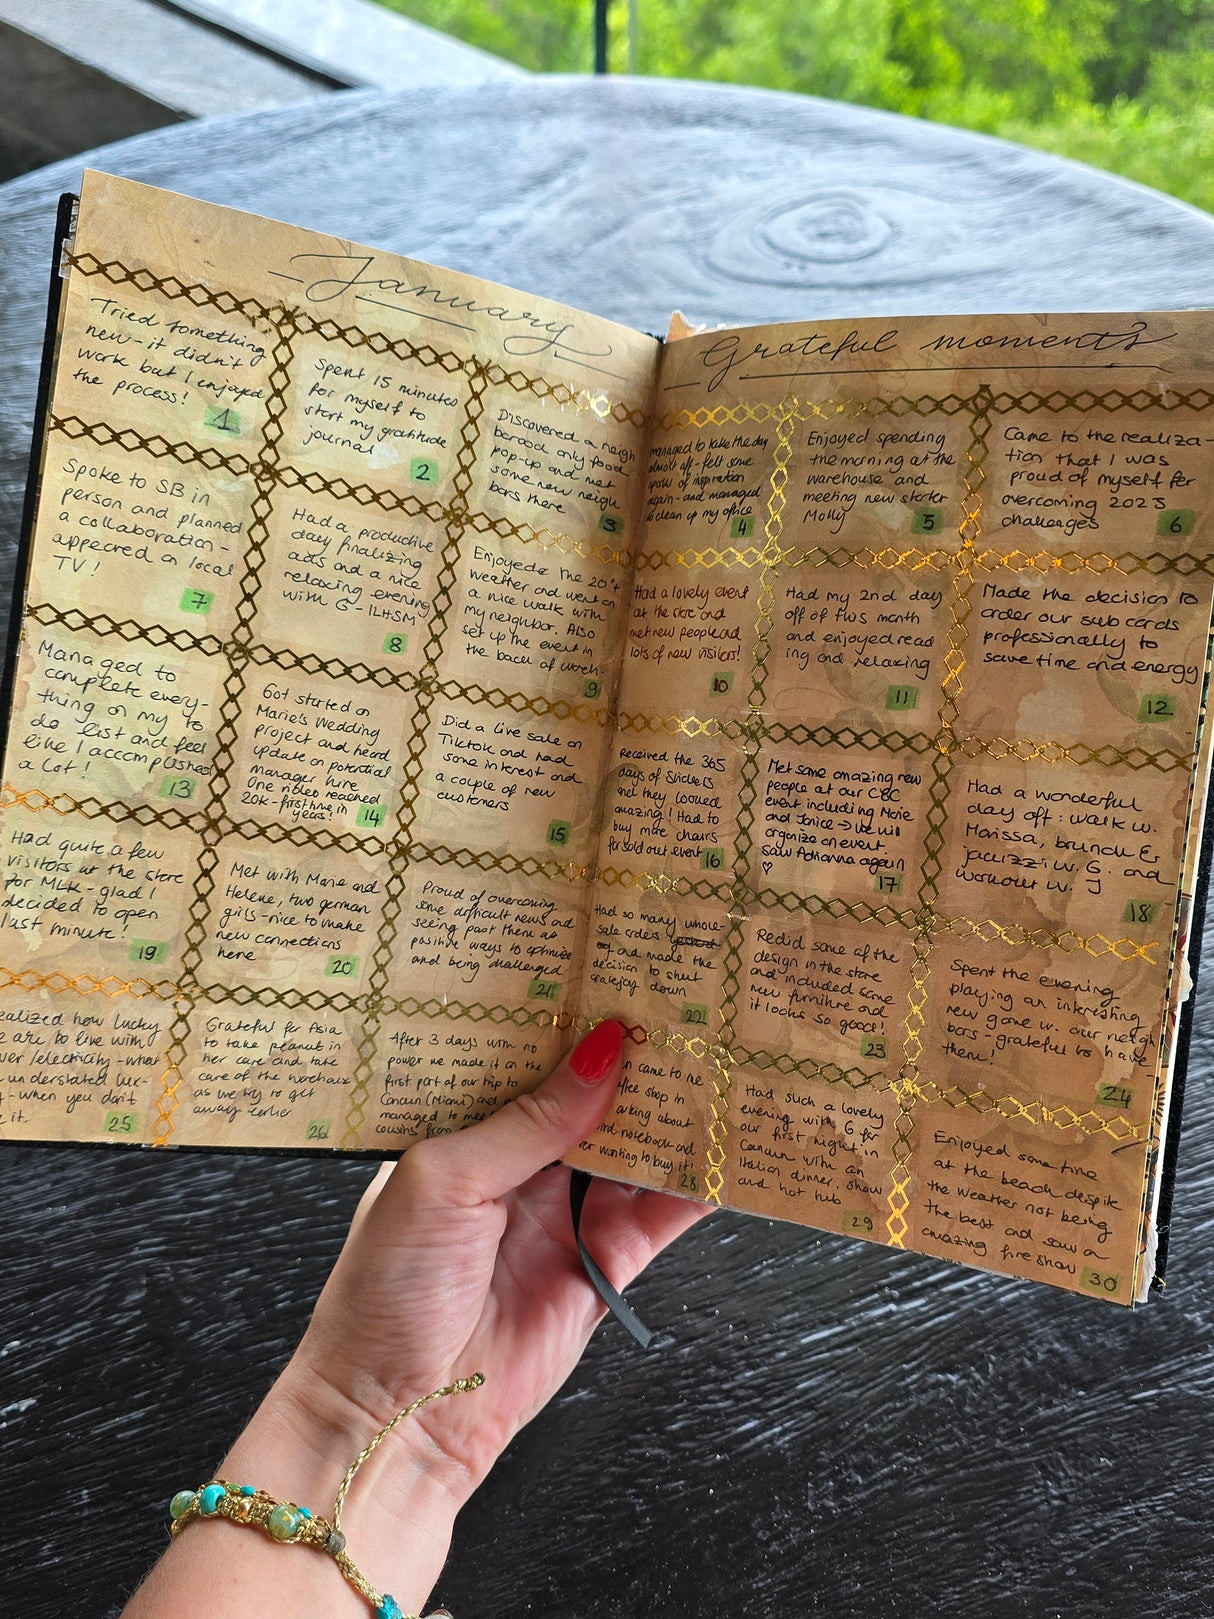 January
Grateful moments
Tried something
new - it didn't
work but I enjoyed
the process!
1
Spent 15 minutes
for myself to
start my gratitude
journal
2
Discovered a neigh
borood only food
pop-up and met
some new neigh
bors there
3
managed to take the day
almost off - felt some
sparks of inspiration
again - and managed
to clean up my office
4
Enjoyed spending
the morning at the
warehouse and
meeting new starter
Molly
5
Came to the realiza-
tion that I was
proud of myself for
overcoming 2023
challenges
6
Spoke to SB in
person and planned
a collaboration -
appeared on local
TV!
7
Had a productive
day finalizing
ads and a nice
relaxing evening
with G - ILHSM
8
Enjoyed the 20°+
weather and went on
a nice walk with
my neighbor. Also
set up the event in
the back of
9
Had a lovely event
at the store and
met new people and
lots of new visitors!
10
Had my 2nd day
off of this month
and enjoyed read
ing and relaxing
11
Made the decision to
order our sub cards
professionally to
save time and energy
12
Managed to
complete every-
thing on my to
do list and feel
like I accomplished
a lot!
13
Got started on
Marie's Wedding
project and heard
update on potential
manager hire
One video reached
20k - first time in
years!
14
Did a Live sale on
Tiktok and had
some interest and
a couple of new
customers
15
Received the 365
days of Stickers
and they looked
amazing! Had to
buy more chairs
for sold out event
16
Met some amazing new
people at our CBC
event including Marie
and Janice → we will
organize an event.
Saw Adrianna again
♡
17
Had a wonderful
day off: walk w.
Marissa, brunch &
jacuzzi w. G. and
workout w. J
18
Had quite a few
visitors at the store
for MLK - glad I
decided to open
last minute!
19
Met with Marie and
Helene, two german
girls - nice to make
new connections
here
20
Proud of overcoming
some difficult news and
seeing past them as
positive ways to optimize
and being challenged
21
Had so many whole-
sale orders
and made the
decision to shut
gratejoy down
22
Redid some of the
design in the store
and included some
new furniture and
it looks so good!
23
Spent the evening
playing an interesting
new game w. our neigh
bors - grateful to have
them!
24
ealized how lucky
e are to live with
er/electricity - what
understated lux-
- when you don't
e it.
25
Grateful for Asia
to take peanut in
her care and take
care of the warehouse
as we try to get
away earlier
26
After 3 days with no
power we made it on the
first part of our trip to
Cancun (Miami) and
managed to mee
cousins from
n came to me
ffee shop in
arking about
notebook and
er wanting to buy it!
28
Had such a lovely
evening with G for
our first night in
Cancun with an
Italian dinner, show
and hot tub
29
Enjoyed some time
at the beach despite
the weather not being
the best and saw a
amazing fire show
30